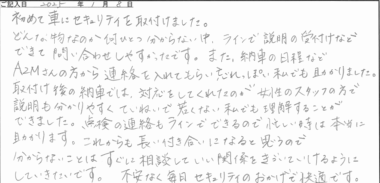 ご記入日 2025 年 1 月 8 日
初めて車にセキュリティを取付けました。
どんな物なのか何ひとつ分からない中、ラインで説明の受付けなど
できて問い合わせしやすかったです。また、納車の日程など
A2Mさんの方から連絡を入れてもらい忘れっぽい私でも助かりました。
取付け後の納車では、対応をしてくれたのが女性のスタッフの方で
説明も分かりやすくていねいで疎くない私でも理解することが
できました。点検の連絡もラインでできるので忙しい時は本当に
助かります。これからも長い付き合いになると思うので
分からないことはすぐに相談していい関係をきずいていけるように
していきたいです。不安なく毎日セキュリティのおかげで快適です。